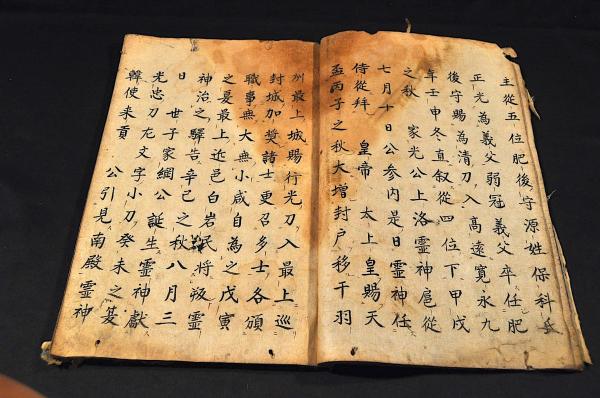 主從五位肥後守源姓保科氏
正光為義父弱冠義父卒任肥
後守賜為清刀入高遠寛永九
年壬申冬直叙從四位下甲戌
之秋 家光公上洛靈神扈從
七月十日公参内是日靈神任
侍從拜 皇帝 太上皇賜天
盃丙子之秋大増封戸移于羽
州最上城賜行光刀入最上巡
封城加奨諸士更召多士各頒
職事無大無小咸自為之戊寅
之夏最上近邑白岩民将叛靈
神治之驛告辛巳之秋八月三
日 世子家綱公誕生靈神獻
光忠刀左文字小刀癸未之夏
韓使来貢 公引見南殿靈神